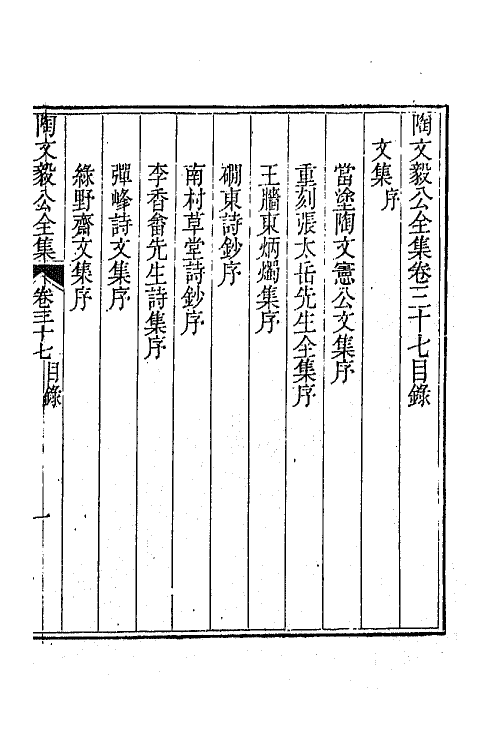 陶文毅公全集卷三十七目錄
文集序
當塗陶文憲公文集序
重刻張太岳先生全集序
王牆東炳燭集序
磵東詩鈔序
南村草堂詩鈔序
李香畬先生詩集序
彈峰詩文集序
綠野齋文集序
陶文毅公全集 卷三十七目錄 一